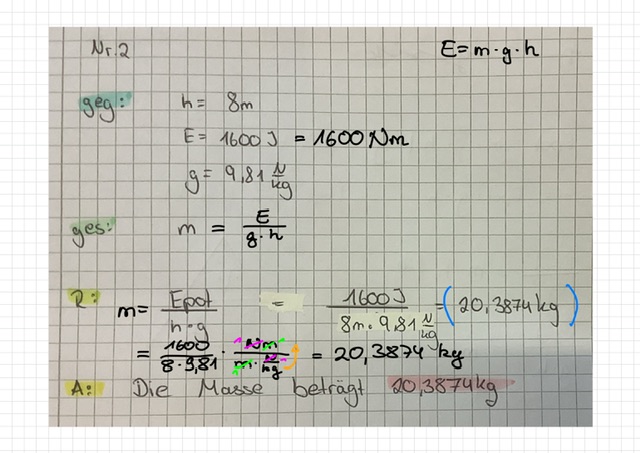 Nr. 2
E = m · g · h
geg: h = 8m
E = 1600 J = 1600 Nm
g = 9,81 N/kg
ges: m = E/(g · h)
R: m = Epot/(h · g) = 1600 J/(8m · 9,81 N/kg) = (20,3874 kg)
= 1600/(8 · 9,81) · Nm/(m · N/kg) = 20,3874 kg
A: Die Masse beträgt 20,3874kg